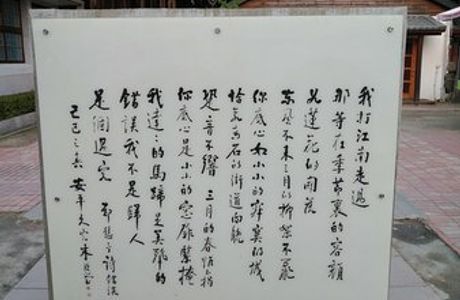 我打江南走過
那等在季節裏的容顏
如蓮花的開落
東風不來三月的柳絮不飛
你底心如小小的寂寞的城
恰若青石的街道向晚
跫音不響 三月的春帷不揭
你底心是小小的窗扉緊掩
我達達的馬蹄是美麗的
錯誤我不是歸人
是個過客 鄭愁予詩錯誤
己巳之 安平